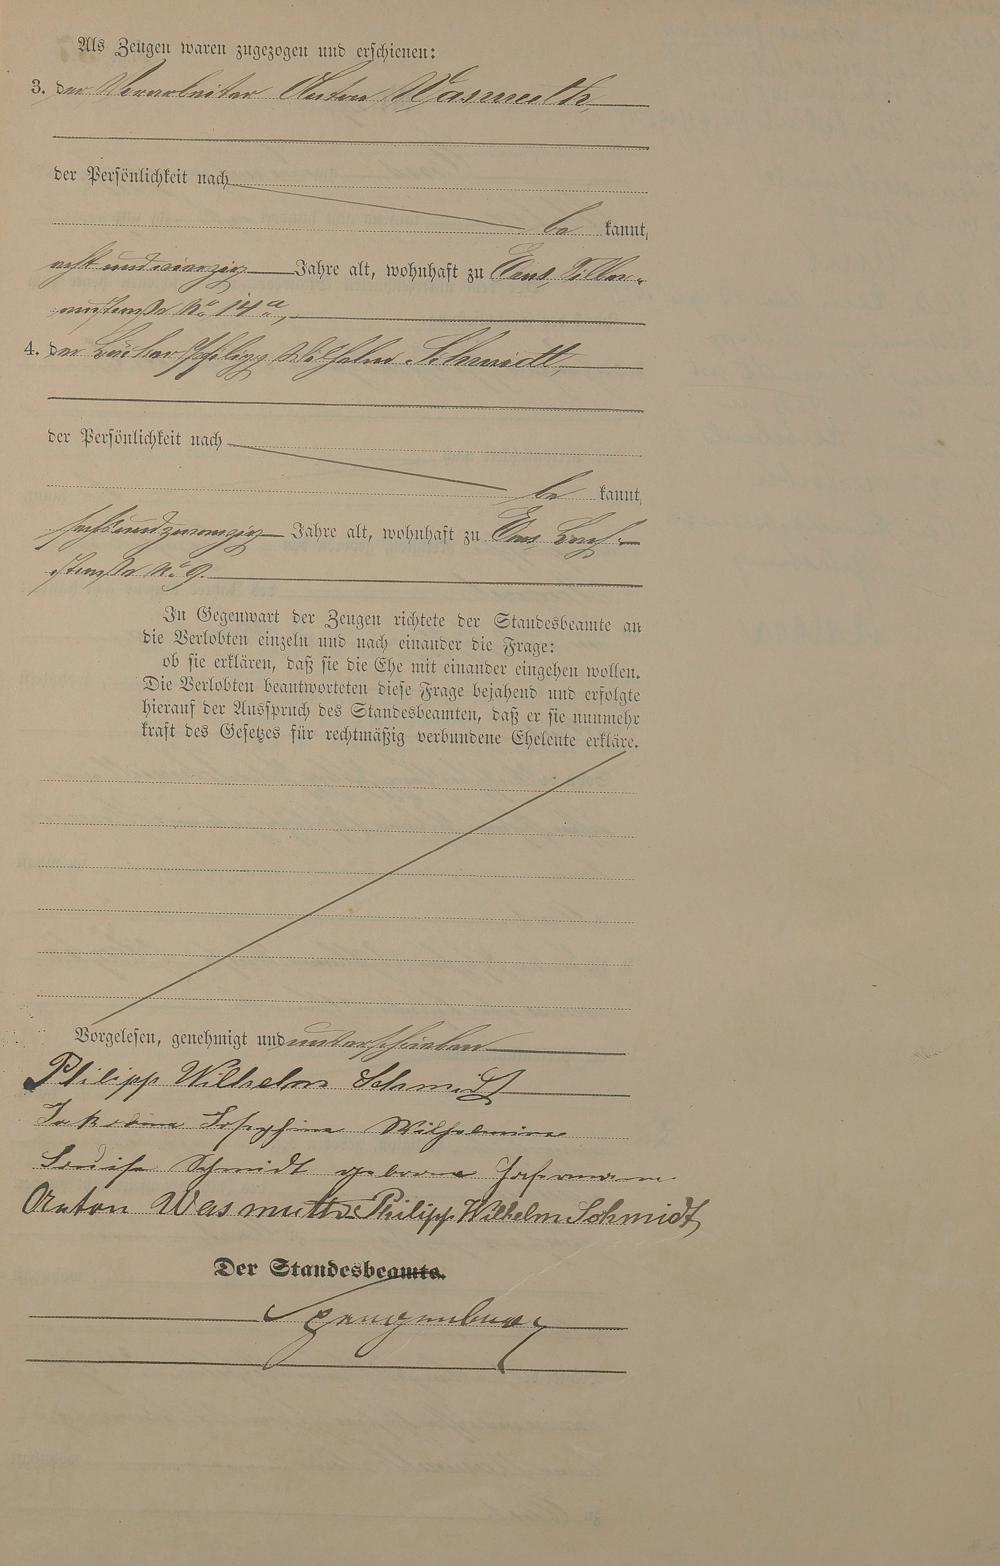 Als Zeugen waren zugezogen und erschienen:
3. der Vorarbeiter Anton Wasmuth,
der Persönlichkeit nach
be kannt,
acht und vierzig Jahre alt, wohnhaft zu Ems,
straße No. 14a,
4. der Bäcker Philipp Wilhelm Schmidt,
der Persönlichkeit nach
be kannt,
sechsundzwanzig Jahre alt, wohnhaft zu Ems, Bach-
straße No. 9.
In Gegenwart der Zeugen richtete der Standesbeamte an
die Verlobten einzeln und nach einander die Frage:
ob sie erklären, daß sie die Ehe mit einander eingehen wollen.
Die Verlobten beantworteten diese Frage bejahend und erfolgte
hierauf der Ausspruch des Standesbeamten, daß er sie nunmehr
kraft des Gesetzes für rechtmäßig verbundene Eheleute erkläre.
Vorgelesen, genehmigt und unterschrieben
Philipp Wilhelm Schmidt
Josephine Wilhelmine
Louise Schmidt geborene
Anton Wasmuth Philipp Wilhelm Schmidt
Der Standesbeamte.